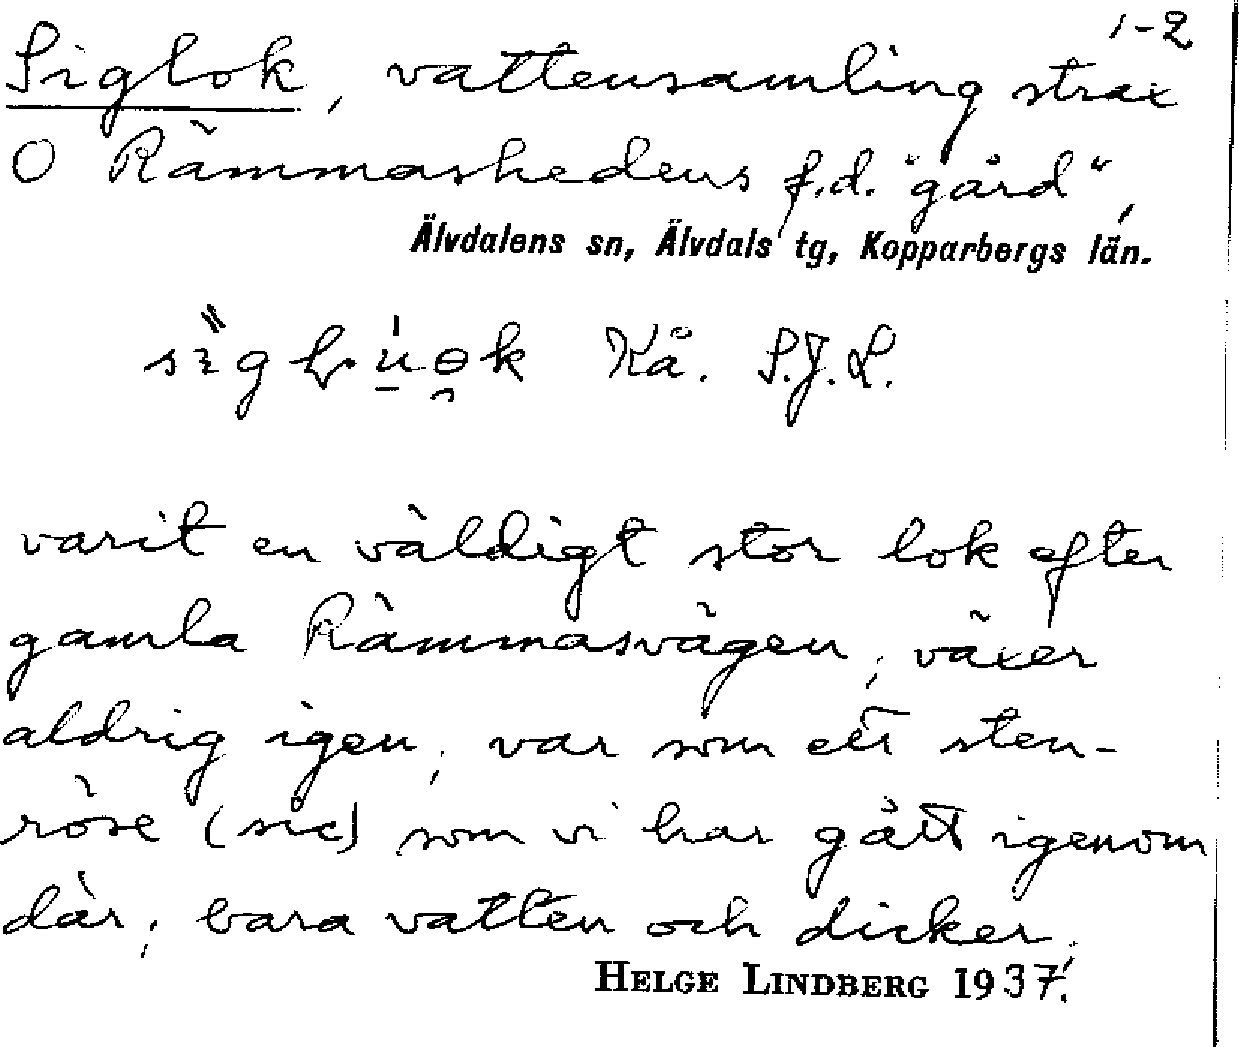 1-2
Siglok, vattensamling strax
O Rämmashedens f.d. "gård",
Älvdalens sn, Älvdals tg, Kopparbergs län.
Kå. S.J.L.
varit en väldigt stor lok efter
gamla Rämmasvägen; växer
aldrig igen; var som ett sten-
röse (sic) som vi har gått igenom
där; bara vatten och dicker;
HELGE LINDBERG 1937.